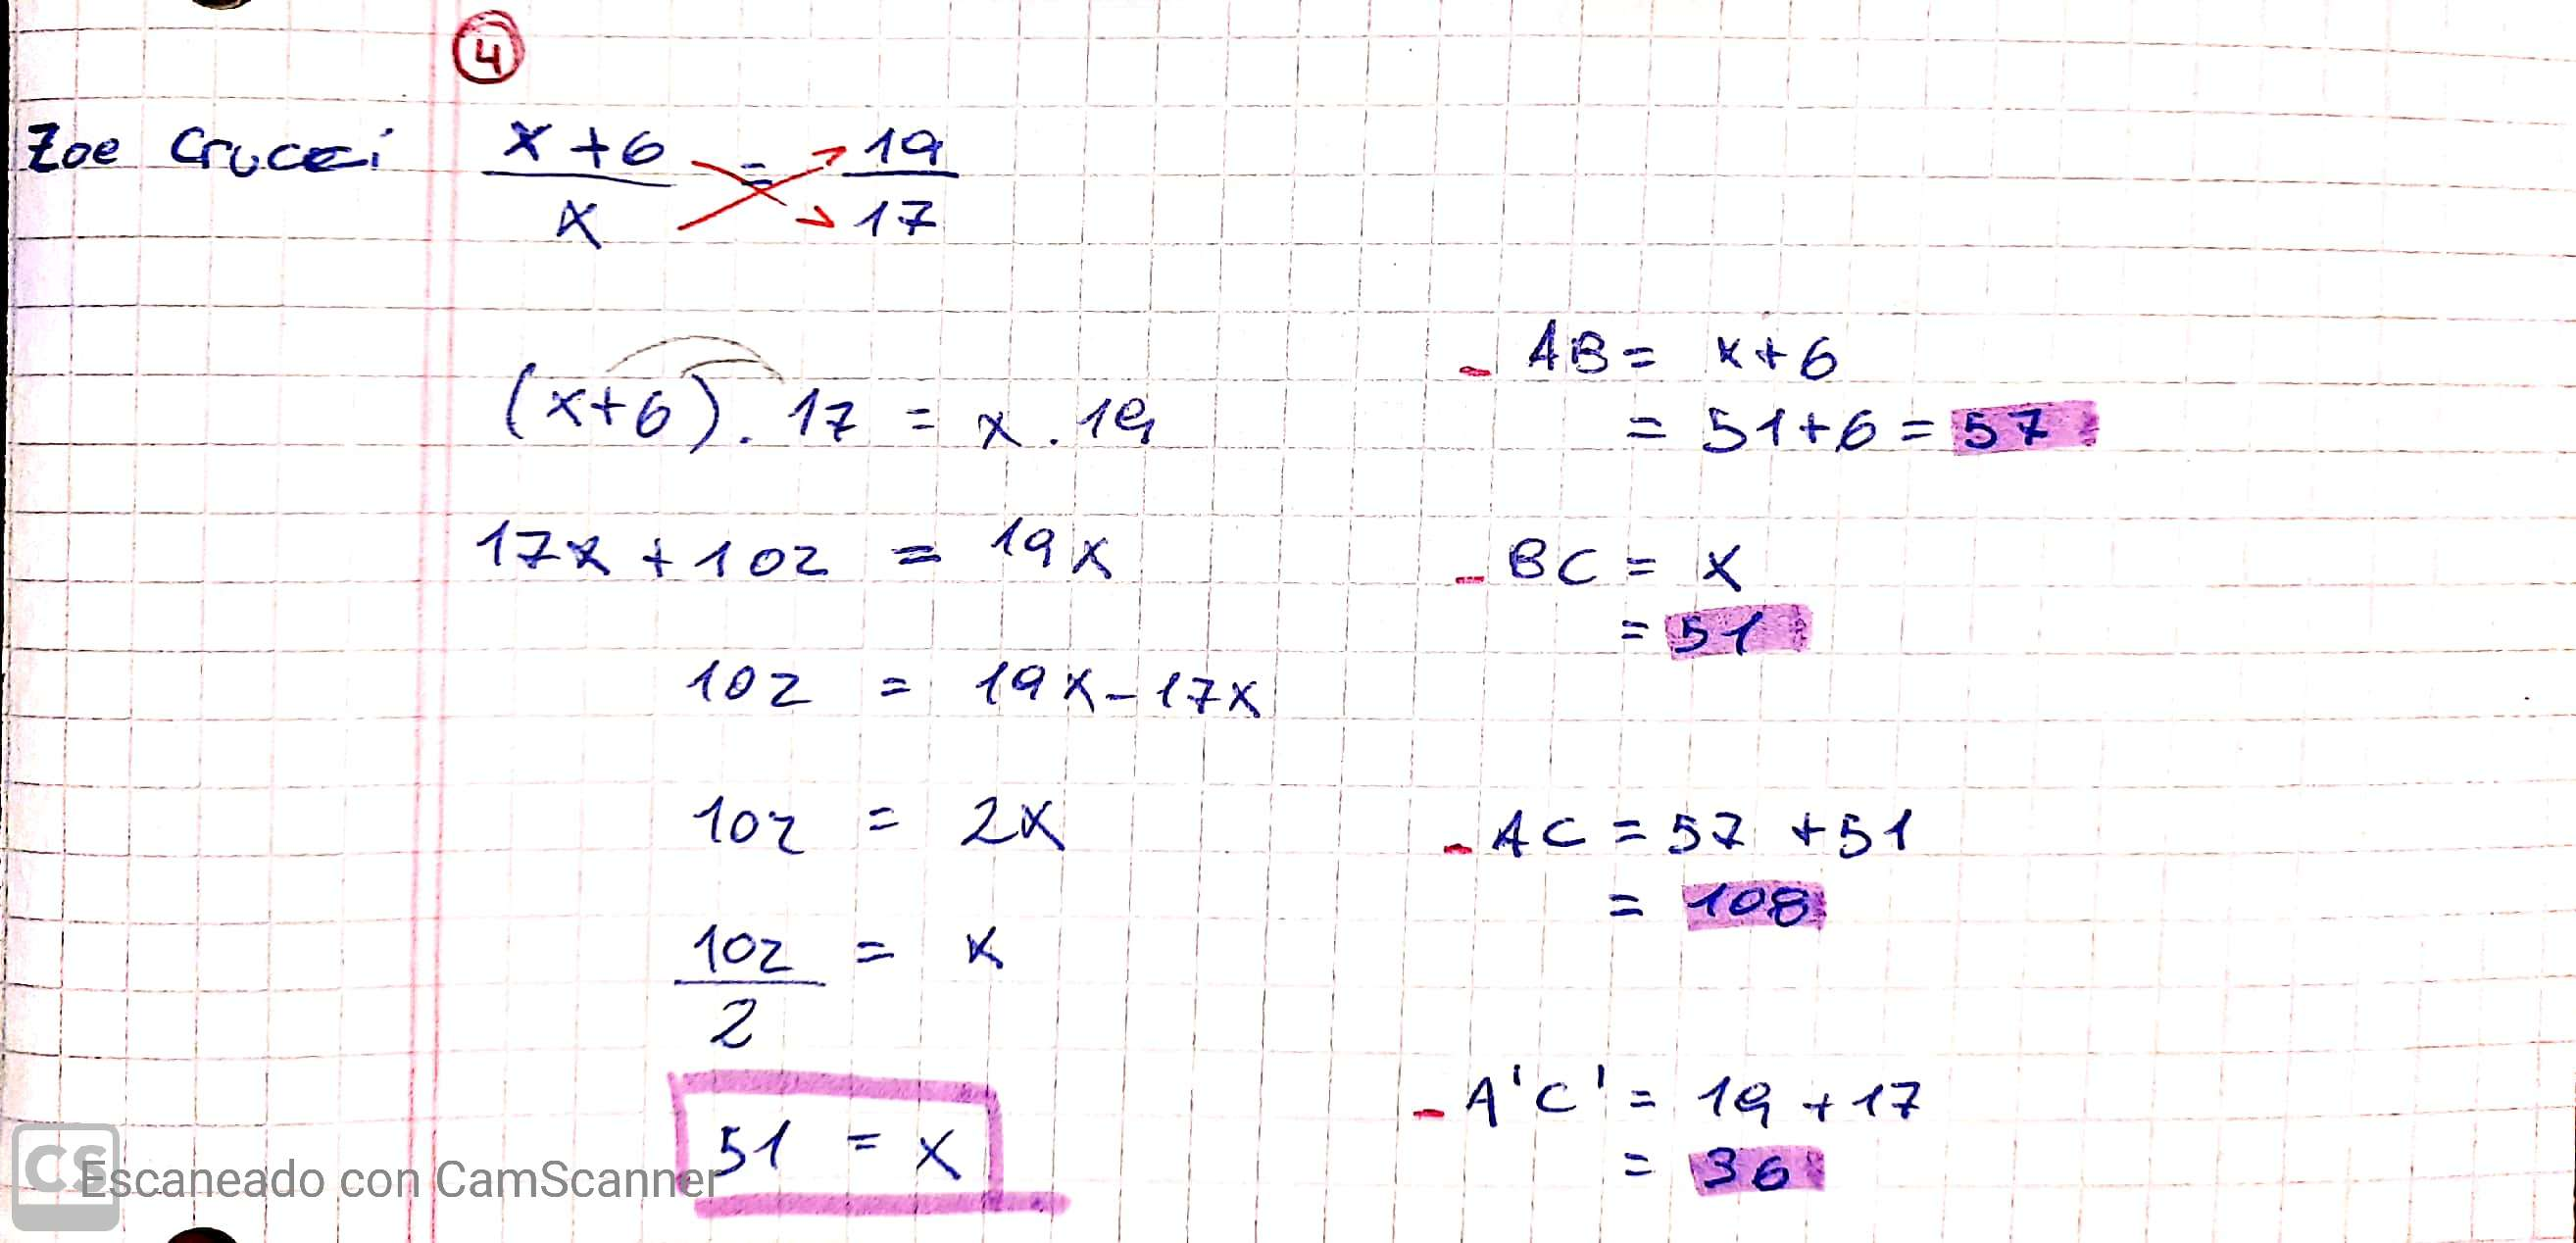 4
Zoe Crucci
x+6 / x = 19 / 17
(x+6) . 17 = x . 19
17x + 102 = 19x
102 = 19x - 17x
102 = 2x
102 / 2 = x
51 = x
- AB = x+6
= 51+6 = 57
- BC = x
= 51
- AC = 57 + 51
= 108
- A'C' = 19 + 17
= 36
CS Escaneado con CamScanner